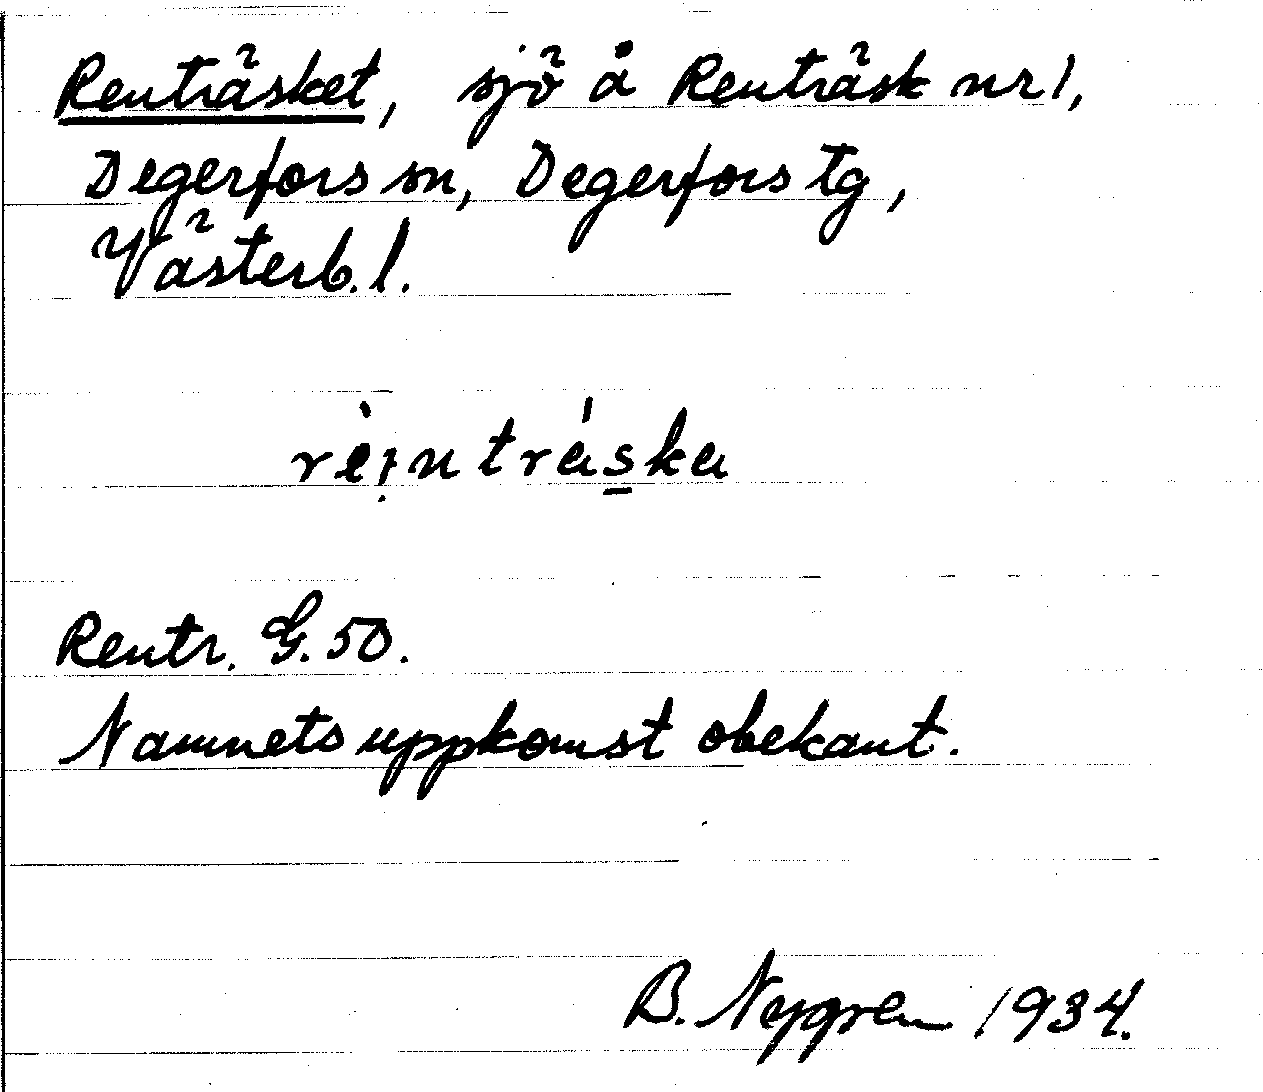 Renträsket, sjö å Renträsk nr 1,
Degerfors sn, Degerfors tg,
Västerb. l.
rèi̭ntráska
Rentr. G. 50.
Namnets uppkomst obekant.
B. Nygren 1934.